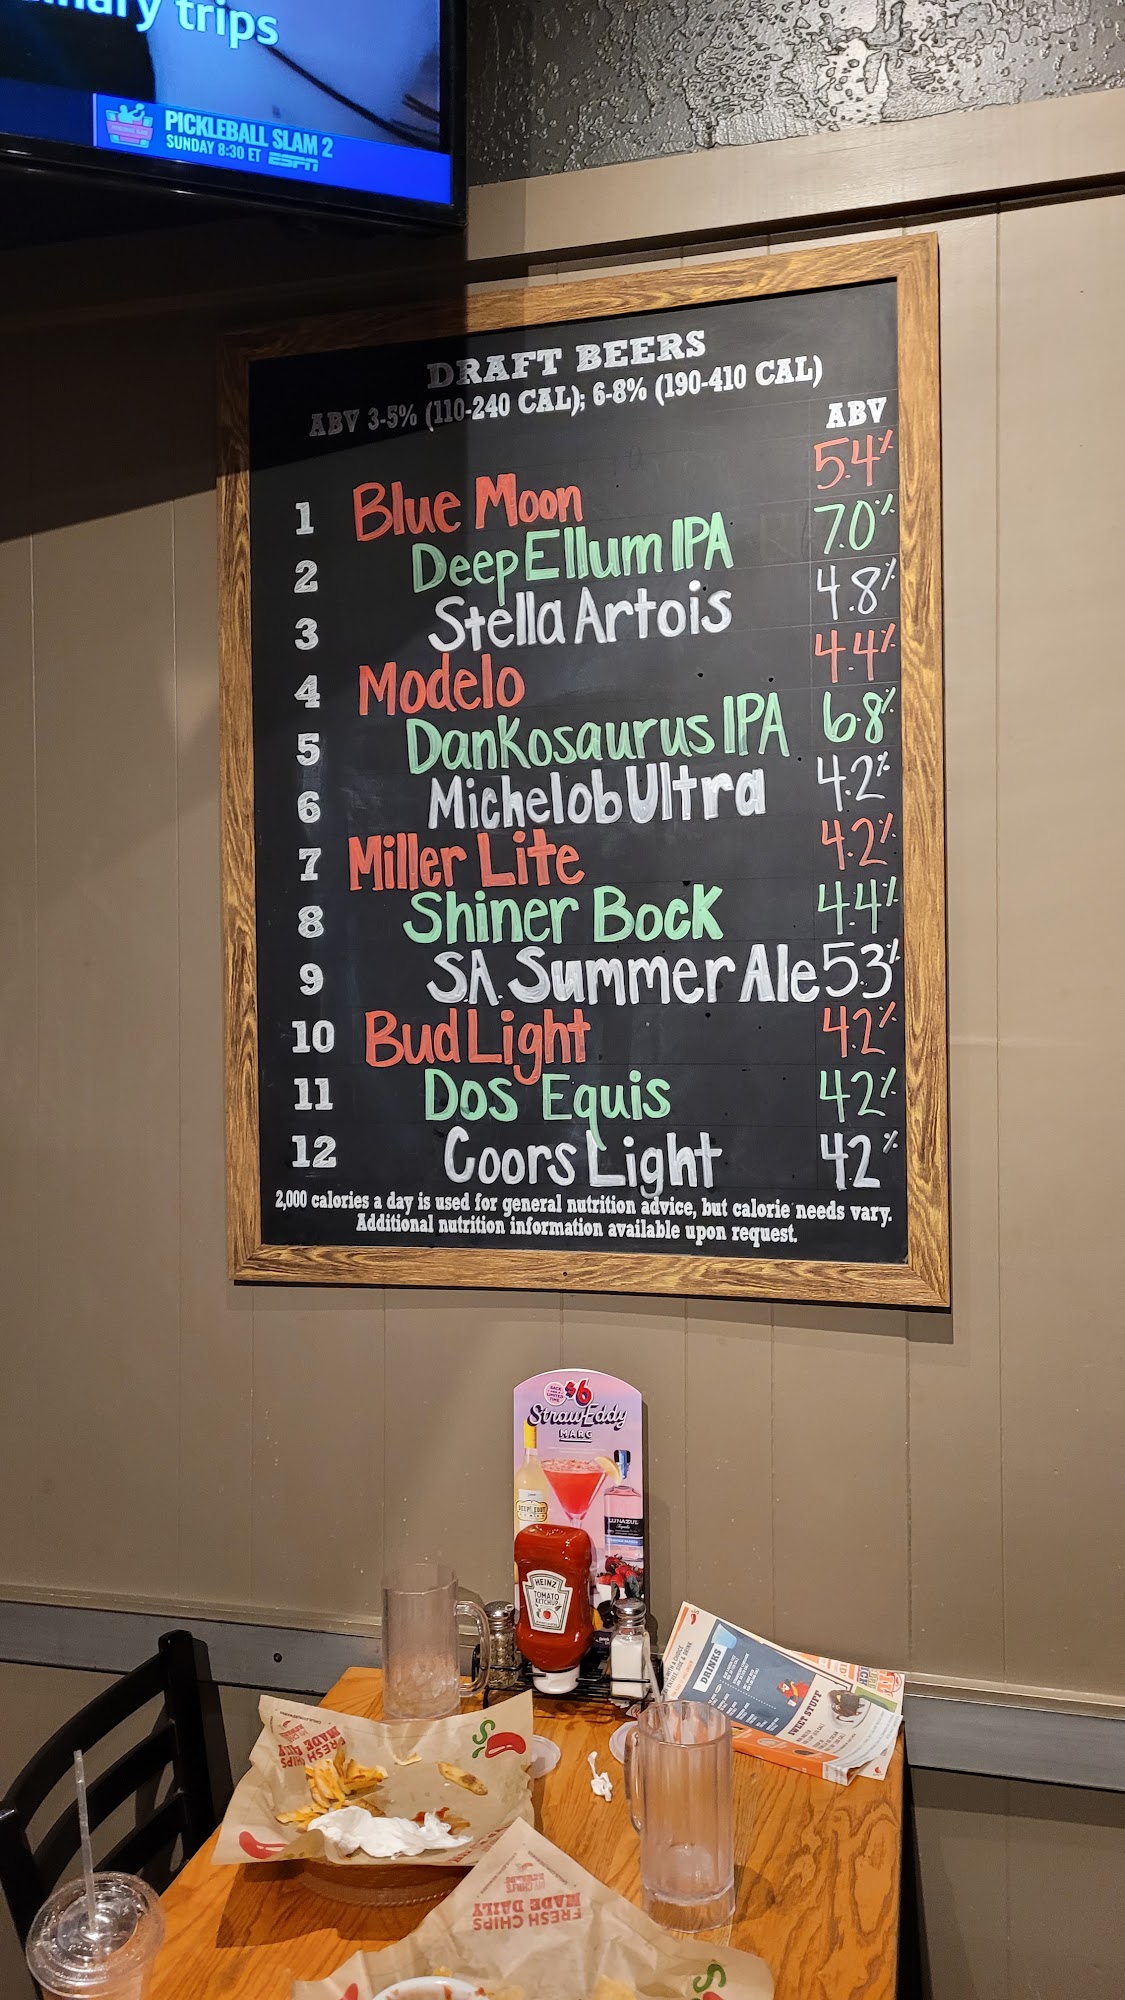 trips
PICKLEBALL SLAM 2
SUNDAY 8:30 ET ESPN
DRAFT BEERS
ABV 3-5% (110-240 CAL); 6-8% (190-410 CAL)
ABV
1 Blue Moon 5.4%
2 Deep Ellum IPA 7.0%
3 Stella Artois 4.8%
4 Modelo 4.4%
5 Dankosaurus IPA 6.8%
6 Michelob Ultra 4.2%
7 Miller Lite 4.2%
8 Shiner Bock 4.4%
9 S.A. Summer Ale 5.3%
10 Bud Light 4.2%
11 Dos Equis 42%
12 Coors Light 42%
2,000 calories a day is used for general nutrition advice, but calorie needs vary.
Additional nutrition information available upon request.
$6
StrawEddy
MARG
LUNAZUL
HEINZ
TOMATO
KETCHUP
DRINKS
SWEET STUFF
FRESH CHIPS
MADE DAILY
FRESH CHIPS
MADE DAILY